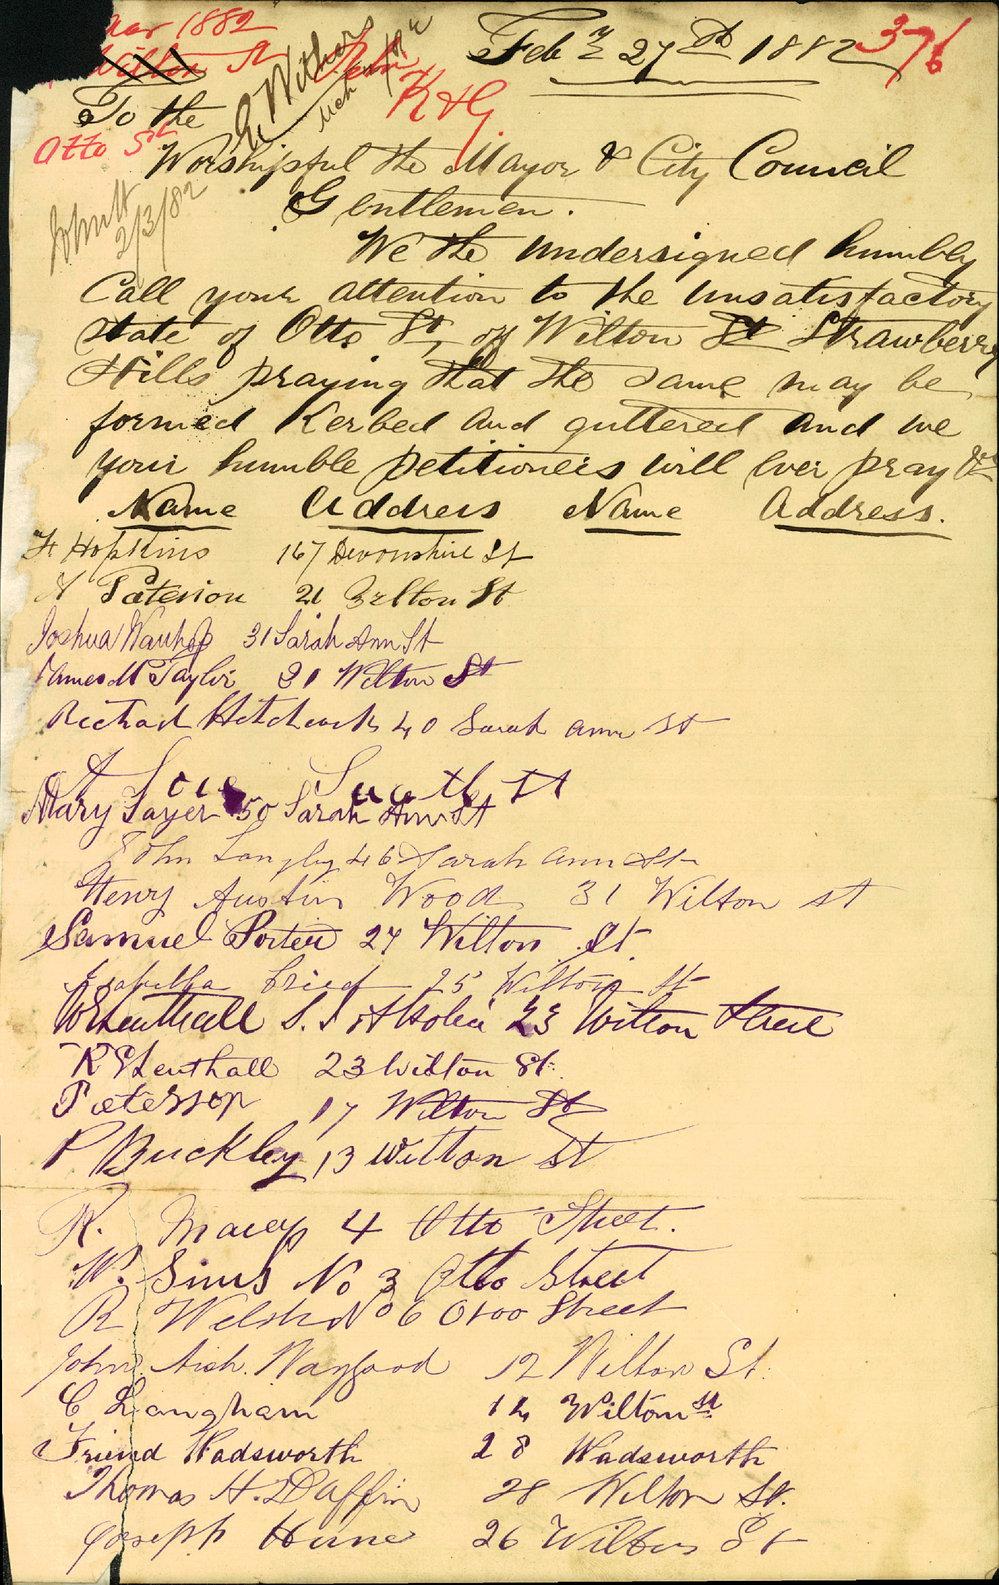 Mar 1882
Wilton St
Feby 27th 1882
376
E Withers
K&G
To the
Otto St
Worshipful the Mayor & City Council
2/3/82
Gentlemen.
We the undersigned humbly
Call your attention to the unsatisfactory
state of Otto St, off Wilton St Strawberry
Hills praying that the same may be
formed Kerbed and guttered and we
your humble petitioners will ever pray &c
Name Address Name Address.
H Hopkins 167 Devonshire St
N Paterson 21 Wilton St
Joshua Wauhop 31 Sarah Ann St
James M Taylor 31 Wilton St
Richard Hitchcock 40 Sarah ann st
A St
Mary Sayer 50 Sarah Ann St
John Langley 46 Sarah ann St
Henry Austin Wood 31 Wilton st
Samuel Porter 27 Wilton St
Isabella 25 Wilton St
W E Lenthall 23 Wilton Street
R E Lenthall 23 Wilton St.
Paterson 17 Wilton St
P Buckley 13 Wilton St
R. Macey 4 Otto Street.
W. Sims No 3 Otto Street
R Welsh No 6 Otoo Street
John Arch. Waygood 12 Wilton St.
C Langham 14 Wilton St
Friend Wadsworth 28 Wadsworth
Thomas H. Daffin 28 Wilton St.
Joseph Hume 26 Wilton St